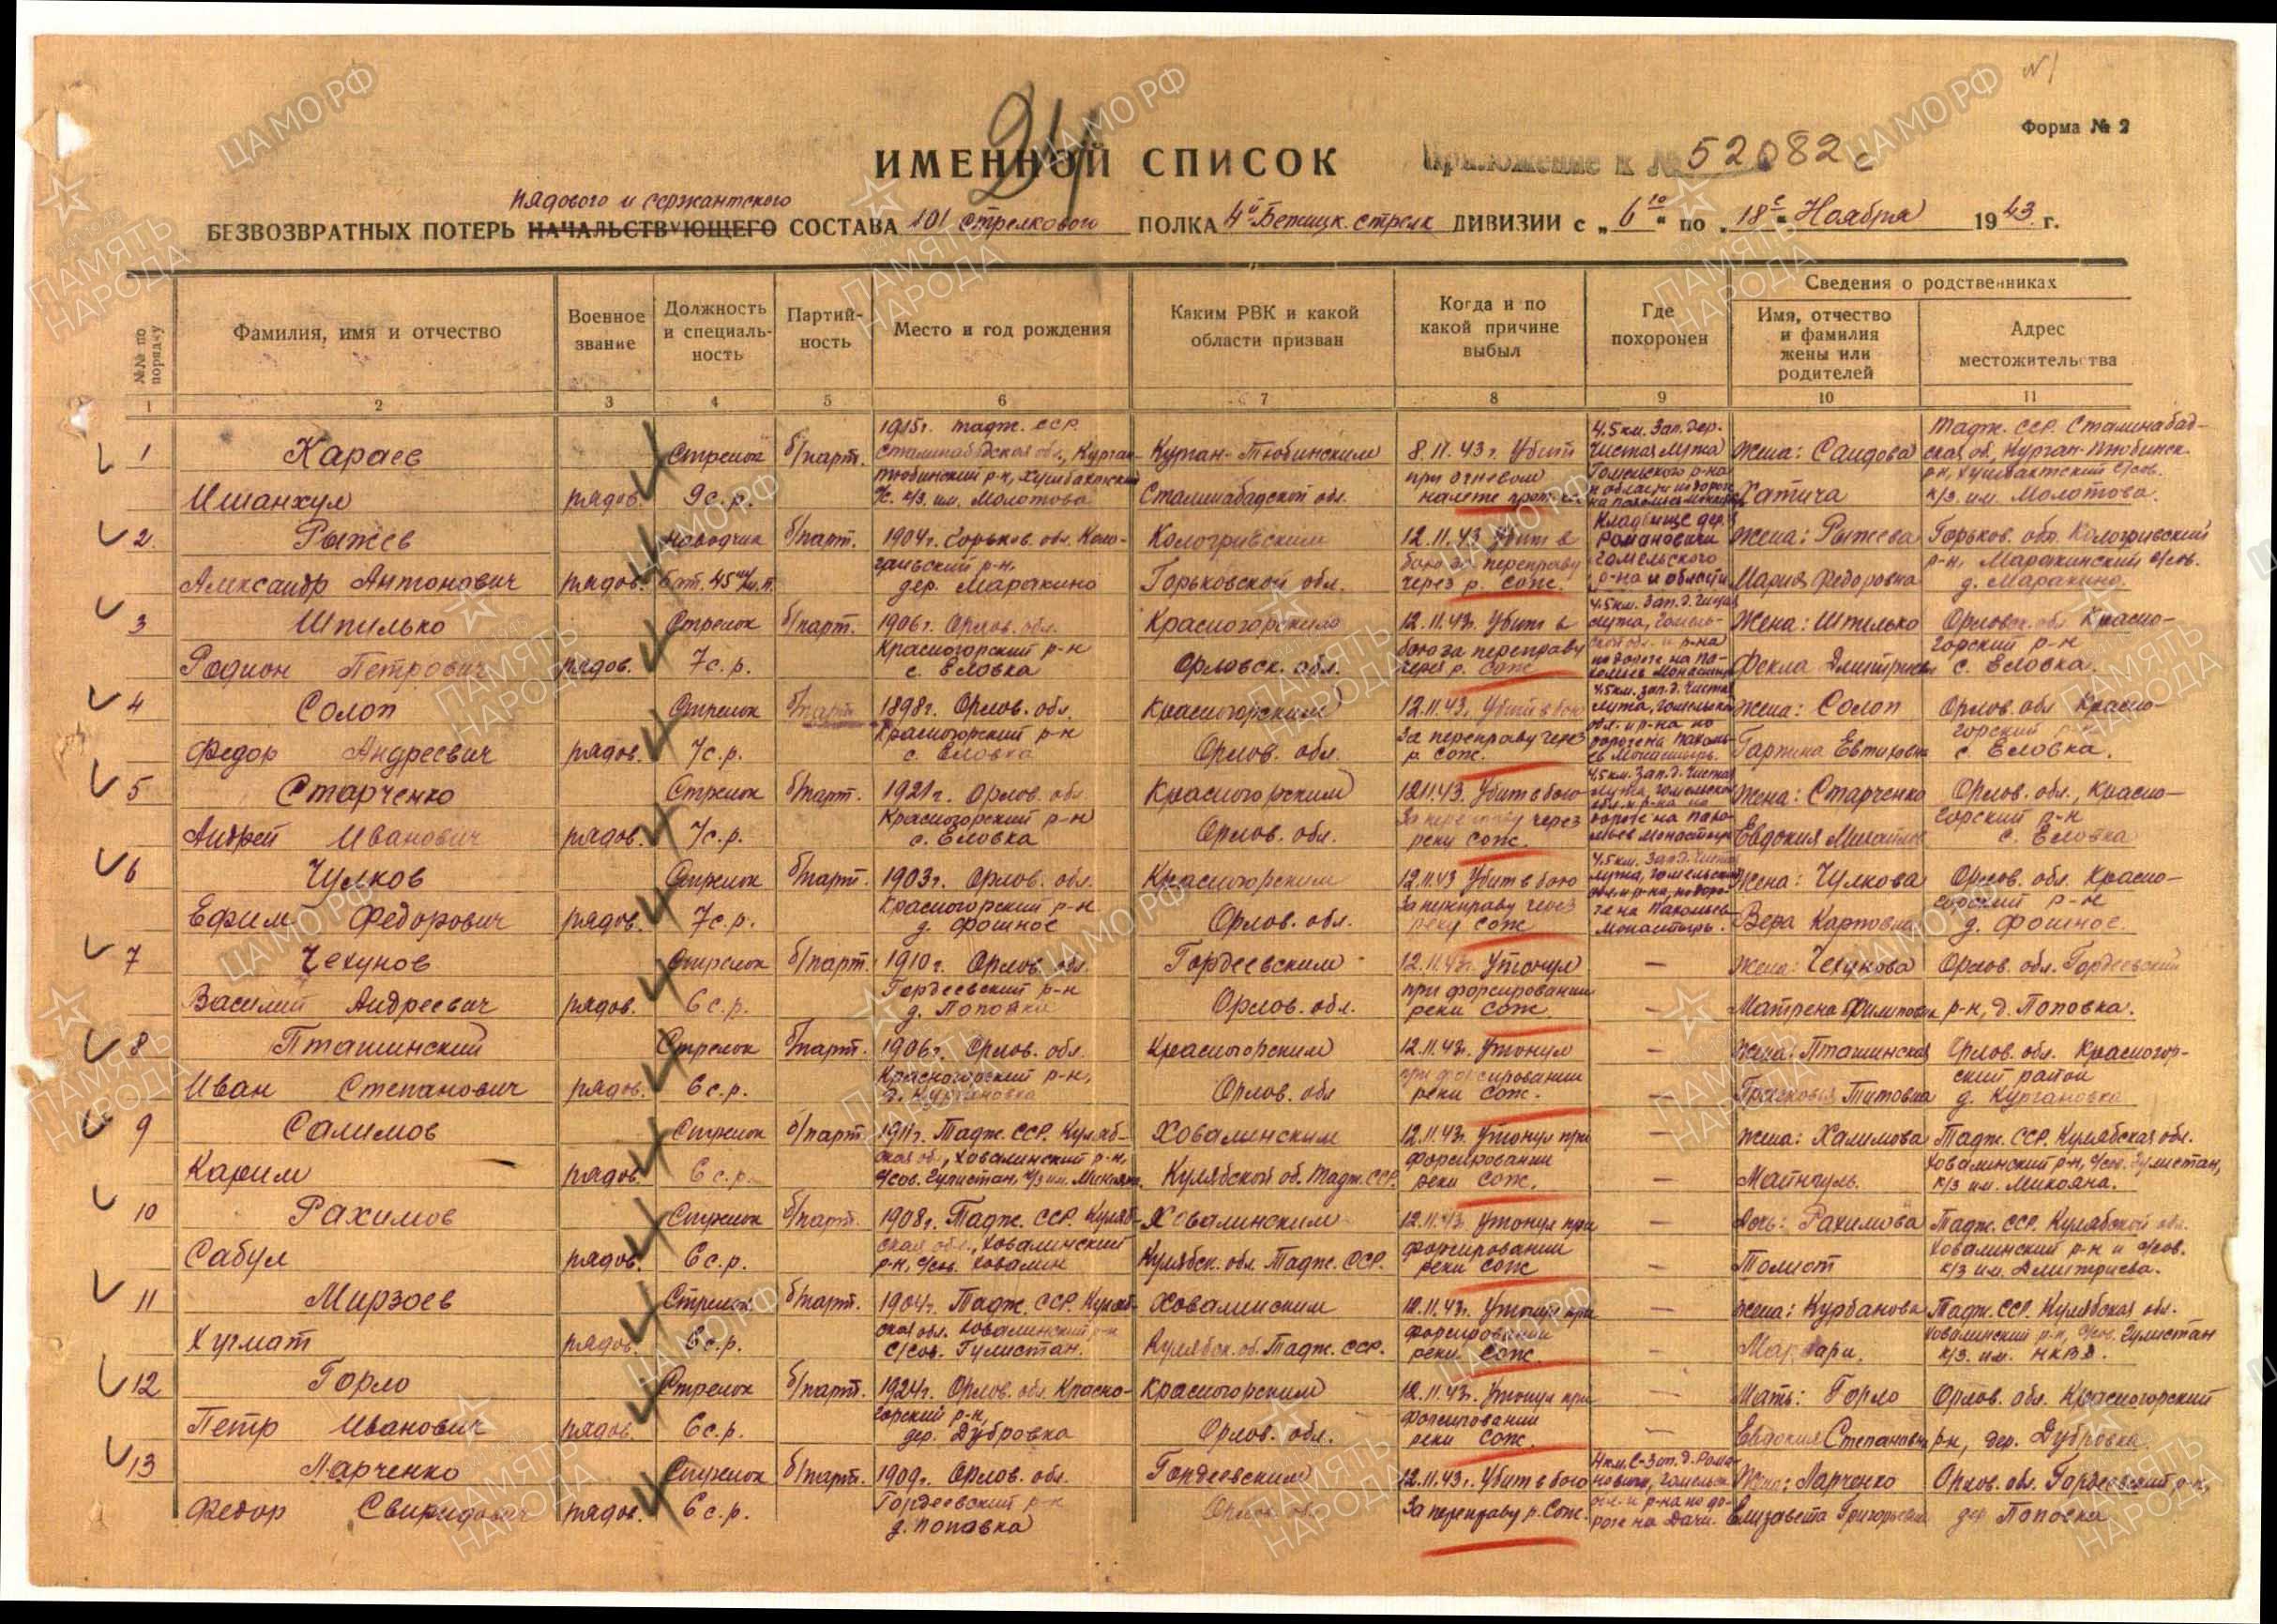 N 1
Форма № 2
24
ИМЕННОЙ СПИСОК
Приложение к № 52082 с
рядового и сержантского
БЕЗВОЗВРАТНЫХ ПОТЕРЬ НАЧАЛЬСТВУЮЩЕГО СОСТАВА 101 стрелкового ПОЛКА 4й Бежицк. стрелк ДИВИЗИИ с „6го“ по „18е“ Ноября 1943 г.
№№ по порядку
Фамилия, имя и отчество
Военное звание
Должность и специаль-ность
Партий-ность
Место и год рождения
Каким РВК и какой области призван
Когда и по какой причине выбыл
Где похоронен
Сведения о родственниках
Имя, отчество и фамилия жены или родителей
Адрес местожительства
1 2 3 4 5 6 7 8 9 10 11
1 Караев Стрелок б/парт. 1915г. тадж. ССР. Сталинабадская обл., Курган- Курган-Тюбинским 8.11.43г. Убит 4,5 км. Зап. дер. Чистая Лужа Жена: Саидова Тадж. ССР. Сталинабад-ская об., Курган-Тюбинск.
Ишанкул рядов. 9 с.р. тюбинский р-н, к/з. им. Молотова Сталинабадской обл. при огневом налете Гомельского р-на и области Хатича р-н, к/з им. Молотова.
2. Рыжев наводчик б/парт. 1904г. Горьков. обл. Коло- Кологривским 12.11.43 Убит в Кладбище дер. Романовичи Жена: Рыжева Горьков. обл. Кологривский
Александр Антонович рядов. бат. 45 мм. п. гривский р-н. дер. Маракино Горьковской обл. бою за переправу через р. Сож. Гомельского р-на и области Мария Федоровна р-н, Маракинский с/сов. д. Маракино.
3 Шпилько Стрелок б/парт. 1906г. Орлов. обл. Красногорским 12.11.43г. Убит в 4,5 км. Зап. д. Чистая Лужа, Жена: Шпилько Орловск. об. Красно-
Родион Петрович рядов. 7 с.р. Красногорский р-н с. Еловка Орловск. обл. бою за переправу через р. Сож по дороге на Па- Фекла горский р-н с. Еловка.
4 Солоп Стрелок б/парт 1898г. Орлов. обл. Красногорским 12.11.43. Убит в бою 4,5 км. Зап. д. Чистая Лужа, Гомельской Жена: Солоп Орлов. обл Красно-
Федор Андреевич рядов. 7 с.р. Красногорский р-н с. Еловка Орлов. обл. за переправу через р. Сож. обл. и р-на по дороге на монастырь. горский р-н с. Еловка.
5 Старченко Стрелок б/парт. 1921г. Орлов. обл. Красногорским 12.11.43. Убит в бою 4,5 км. Зап. д. Чистая Лужа, Гомельской Жена: Старченко Орлов. обл., Красно-
Андрей Иванович рядов. 7 с.р. Красногорский р-н с. Еловка Орлов. обл. за переправу через реку Сож. обл. и р-на по дороге на Евдокия горский р-н с. Еловка
6 Чулков Стрелок б/парт. 1903г. Орлов. обл. Красногорским 12.11.43 Убит в бою 4,5 км. Зап. д. Чистая Лужа, Гомельской Жена: Чулкова Орлов. обл. Красно-
Ефим Федорович рядов. 7 с.р. Красногорский р-н д. Фошное Орлов. обл. за переправу через реку Сож обл. и р-на, по доро-ге на монастырь. Вера Карповна горский р-н д. Фошное.
7 Чехунов Стрелок б/парт. 1910г. Орлов. обл. Гордеевским 12.11.43г. Утонул — Жена: Чехунова Орлов. обл. Гордеевский
Василий Андреевич рядов. 6 с.р. Гордеевский р-н д. Поповка Орлов. обл. при форсировании реки Сож. — Матрена р-н, д. Поповка.
8 Пташинский Стрелок б/парт. 1906г. Орлов. обл. Красногорским 12.11.43г. Утонул — Жена: Пташинская Орлов. обл. Красногор-
Иван Степанович рядов. 6 с.р. Красногорский р-н, д. Кургановка Орлов. обл при форсировании реки Сож. — Прасковья Титовна ский район д. Кургановка
9 Салимов Стрелок б/парт 1911г. Тадж. ССР. Куляб- Ховалинским 12.11.43г. Утонул при — Жена: Халимова Тадж. ССР. Кулябская обл.
Карим рядов. 6 с.р. ская об., Ховалинский р-н, с/сов. Гулистан, к/з им. Микояна. Кулябской об. Тадж. ССР. форсировании реки Сож. — Майнгуль. Ховалинский р-н, с/сов. Гулистан, к/з им. Микояна.
10 Рахимов Стрелок б/парт. 1908г. Тадж. ССР. Куляб- Ховалинским 12.11.43. Утонул при — Дочь: Рахимова Тадж. ССР. Кулябской обл.
Сабул рядов. 6 с.р. ская обл., Ховалинский р-н, с/сов. Ховалин Кулябск. обл. Тадж. ССР. форсировании реки Сож — Ховалинский р-н и с/сов. к/з им. Дмитриева.
11 Мирзоев Стрелок б/парт. 1904г. Тадж. ССР. Куляб- Ховалинским 12.11.43г. Утонул при — Жена: Курбанова Тадж. ССР. Кулябская обл.
Хугмат рядов. 6 с.р. ская обл. Ховалинский р-н с/сов. Гулистан. Кулябск. об. Тадж. ССР. форсировании реки Сож. — Ховалинский р-н, с/сов. Гулистан к/з. им. НКВД.
12 Горло Стрелок б/парт. 1924г. Орлов. обл. Красно- Красногорским 12.11.43г. Утонул при — Мать: Горло Орлов. обл. Красногорский
Петр Иванович рядов. 6 с.р. горский р-н, дер. Дубровка Орлов. обл. форсировании реки Сож. — Евдокия Степановна р-н, дер. Дубровка.
13 Ларченко Стрелок б/парт. 1909г. Орлов. обл. Гордеевским 12.11.43г. Убит в бою 4 км. С-Зап. д. Рома-новичи, Гомельск. Жена: Ларченко Орлов. обл. Гордеевский р-н,
Федор Свиридович рядов. 6 с.р. Гордеевский р-н д. Поповка Орлов. об. за переправу р. Сож. обл. и р-на по до-роге на Дачи. Елизавета Григорьевна дер Поповка
ЦАМО.РФ
ПАМЯТЬ НАРОДА